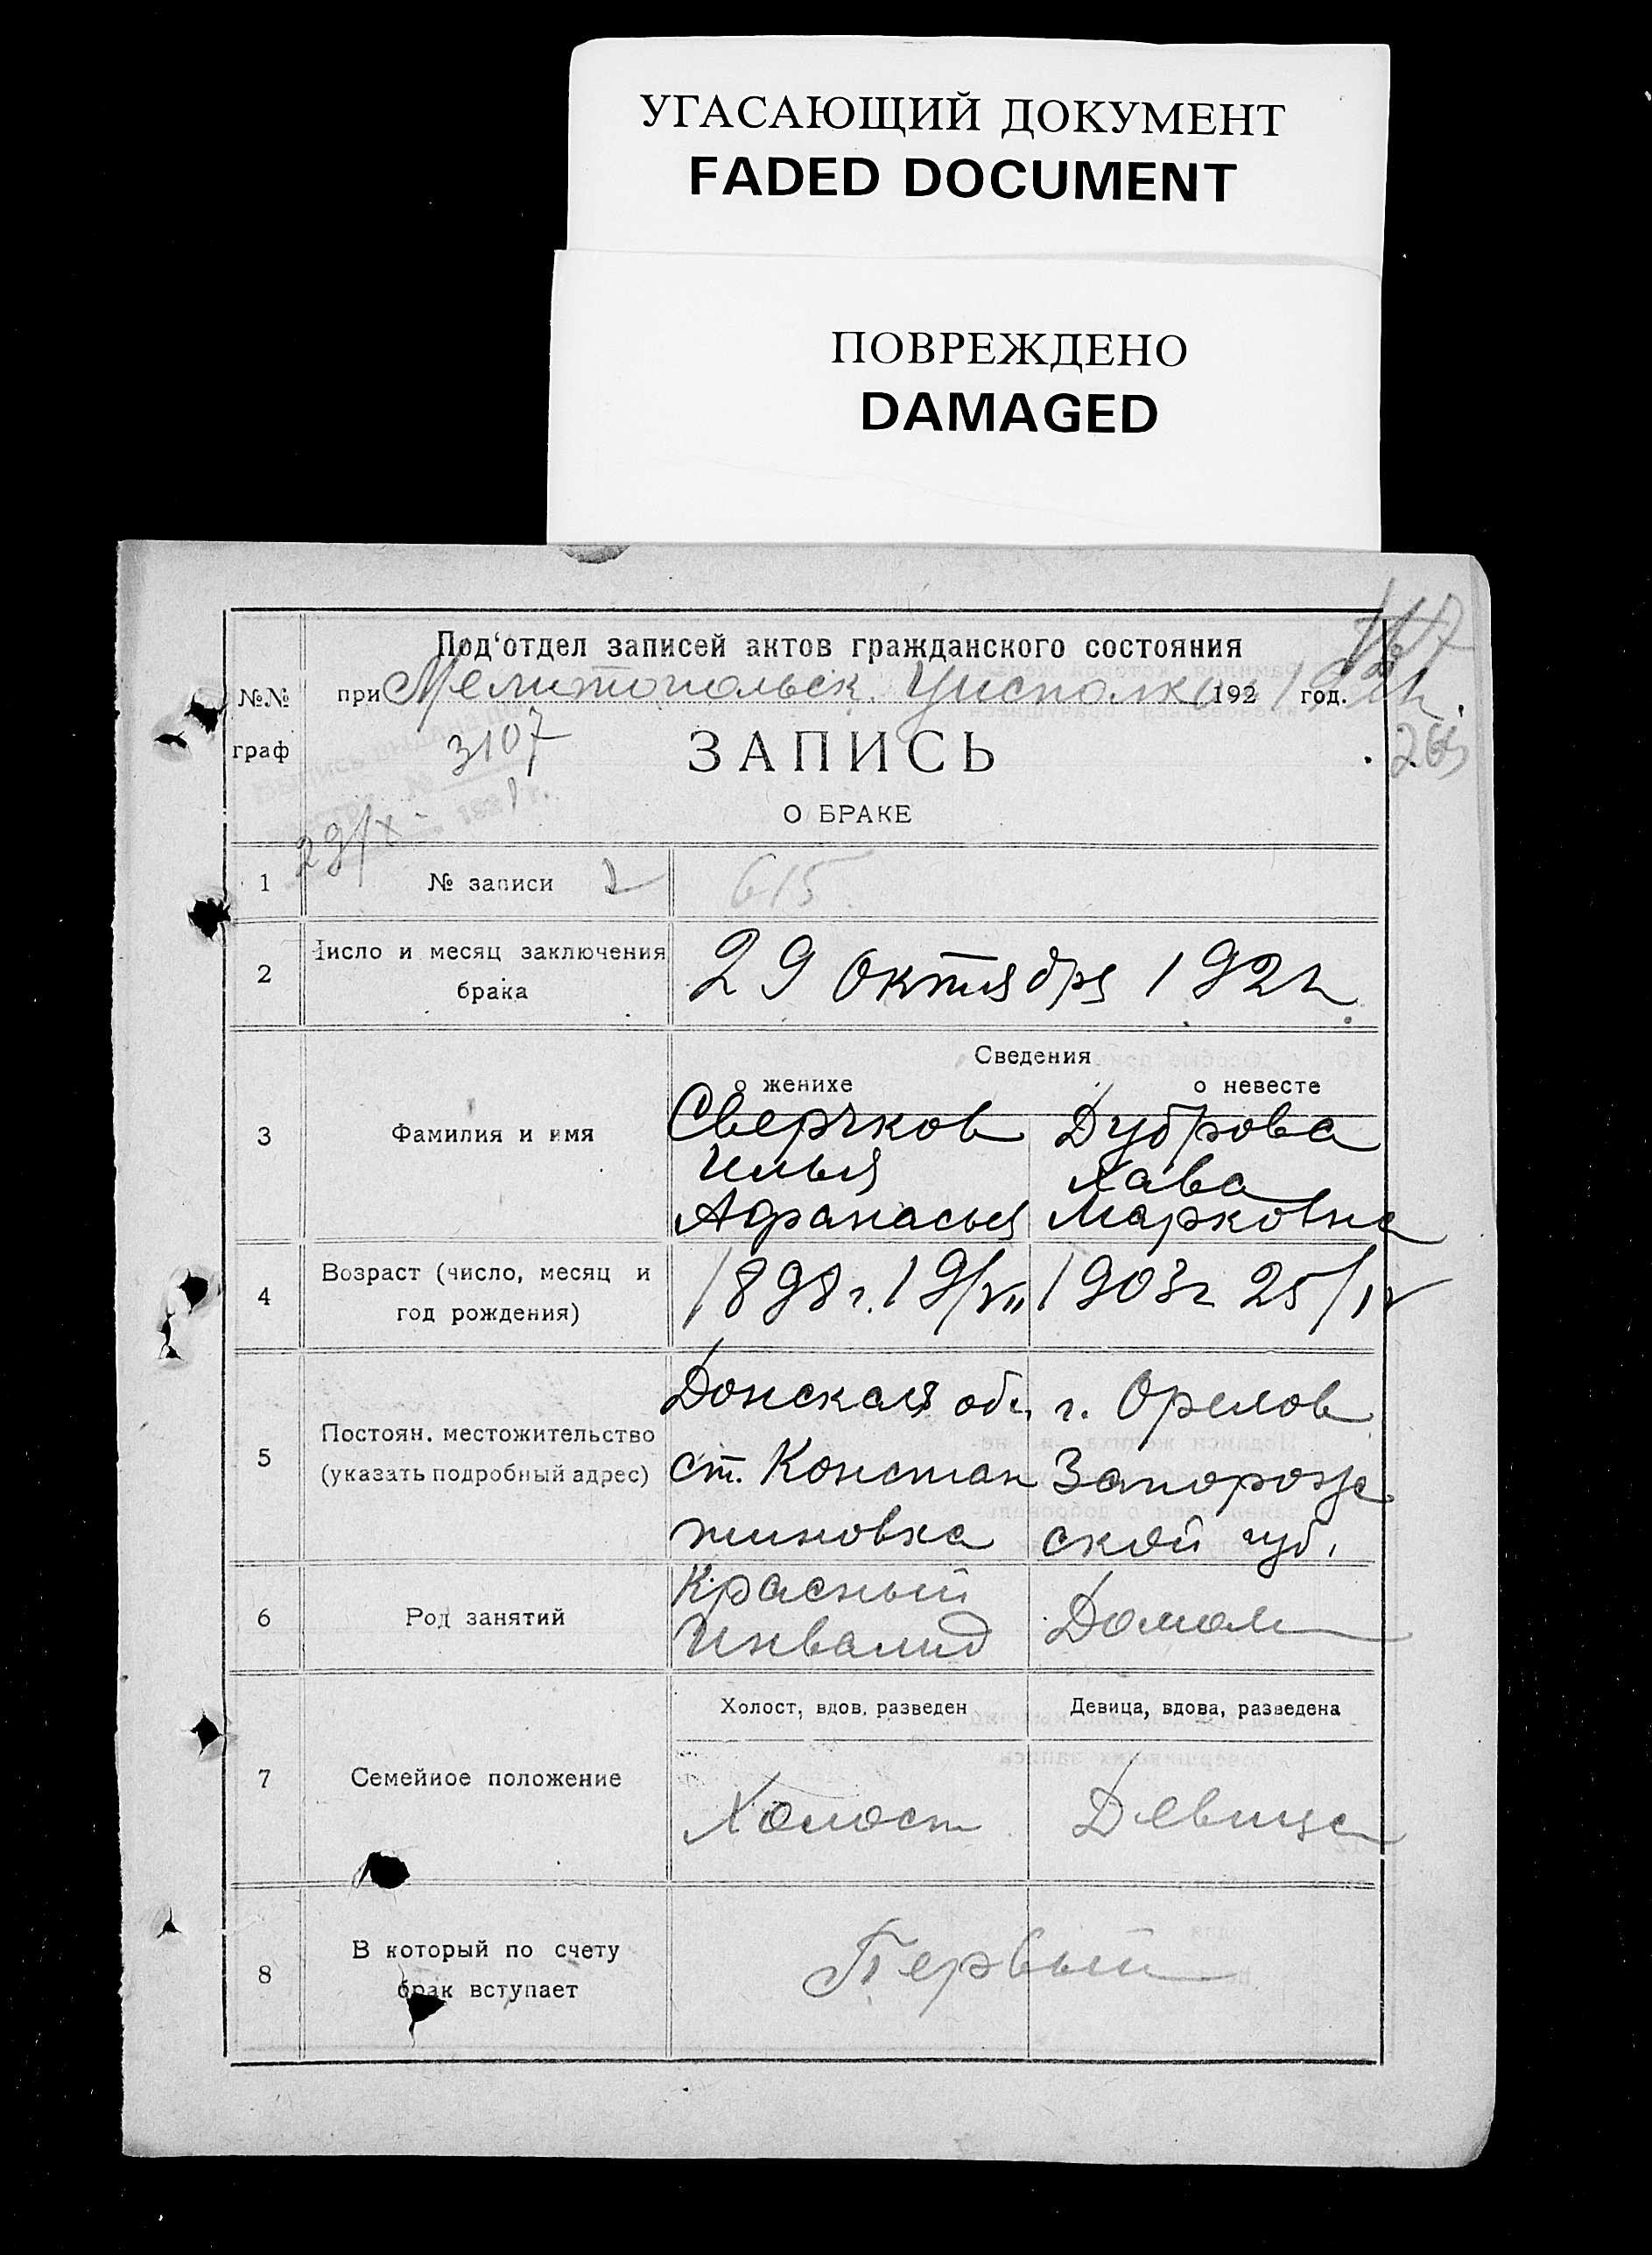 УГАСАЮЩИЙ ДОКУМЕНТ
FADED DOCUMENT
ПОВРЕЖДЕНО
DAMAGED
Под'отдел записей актов гражданского состояния
№№ граф
при Мелитопольск. Уисполко 192 1 год.
3107
265
ЗАПИСЬ
О БРАКЕ
29/X
1 № записи 615
2 Число и месяц заключения брака 29 Октября 1921
Сведения
о женихе о невесте
3 Фамилия и имя
Сверчков Дуброва
Илья Хава
Афанасья Марковна
4 Возраст (число, месяц и год рождения)
1898 г. 19/VII 1903 г 25/IV
5 Постоян. местожительство (указать подробный адрес)
Донская об., г. Орелов
ст. Констан Запороже
тиновка ской губ.
6 Род занятий
Красный
Инвалид Домом
7 Семейное положение
Холост, вдов, разведен Девица, вдова, разведена
Холост Девица
8 В который по счету брак вступает
Первый